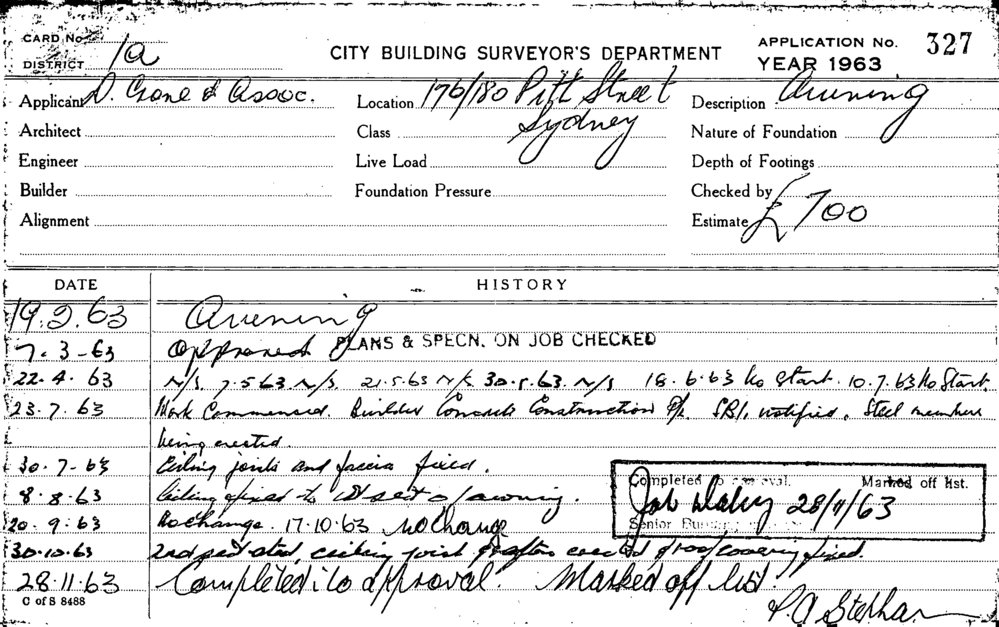 CARD No.
CITY BUILDING SURVEYOR'S DEPARTMENT
APPLICATION No. 327
DISTRICT 1a
YEAR 1963
Applicant D. Crone & Assoc.
Location 176/180 Pitt Street
Sydney
Description Awning
Architect
Class
Nature of Foundation
Engineer
Live Load
Depth of Footings
Builder
Foundation Pressure
Checked by
Alignment
Estimate £700
DATE HISTORY
19.2.63 Awning
7-3-63 Approved PLANS & SPECN. ON JOB CHECKED
22.4.63 N/S. 7.5.63. N/S. 21.5.63 N/S 30.5.63. N/S 18.6.63 No Start. 10.7.63 No Start.
23.7.63 Work Commenced. Builder Concrete Construction P/L. notified. Steel members
being erected.
30-7-63 Ceiling joists and fascia fixed.
8.8.63 Ceiling fixed to 1st sect of awning.
20.9.63 No Change. 17.10.63 No Change
30.10.63 2nd sect ceiling joist & rafters erected & roof covering fixed.
28.11.63 Completed to approval. Marked off list
Completed to approval. Marked off list.
28/11/63
Senior
C of S 8488